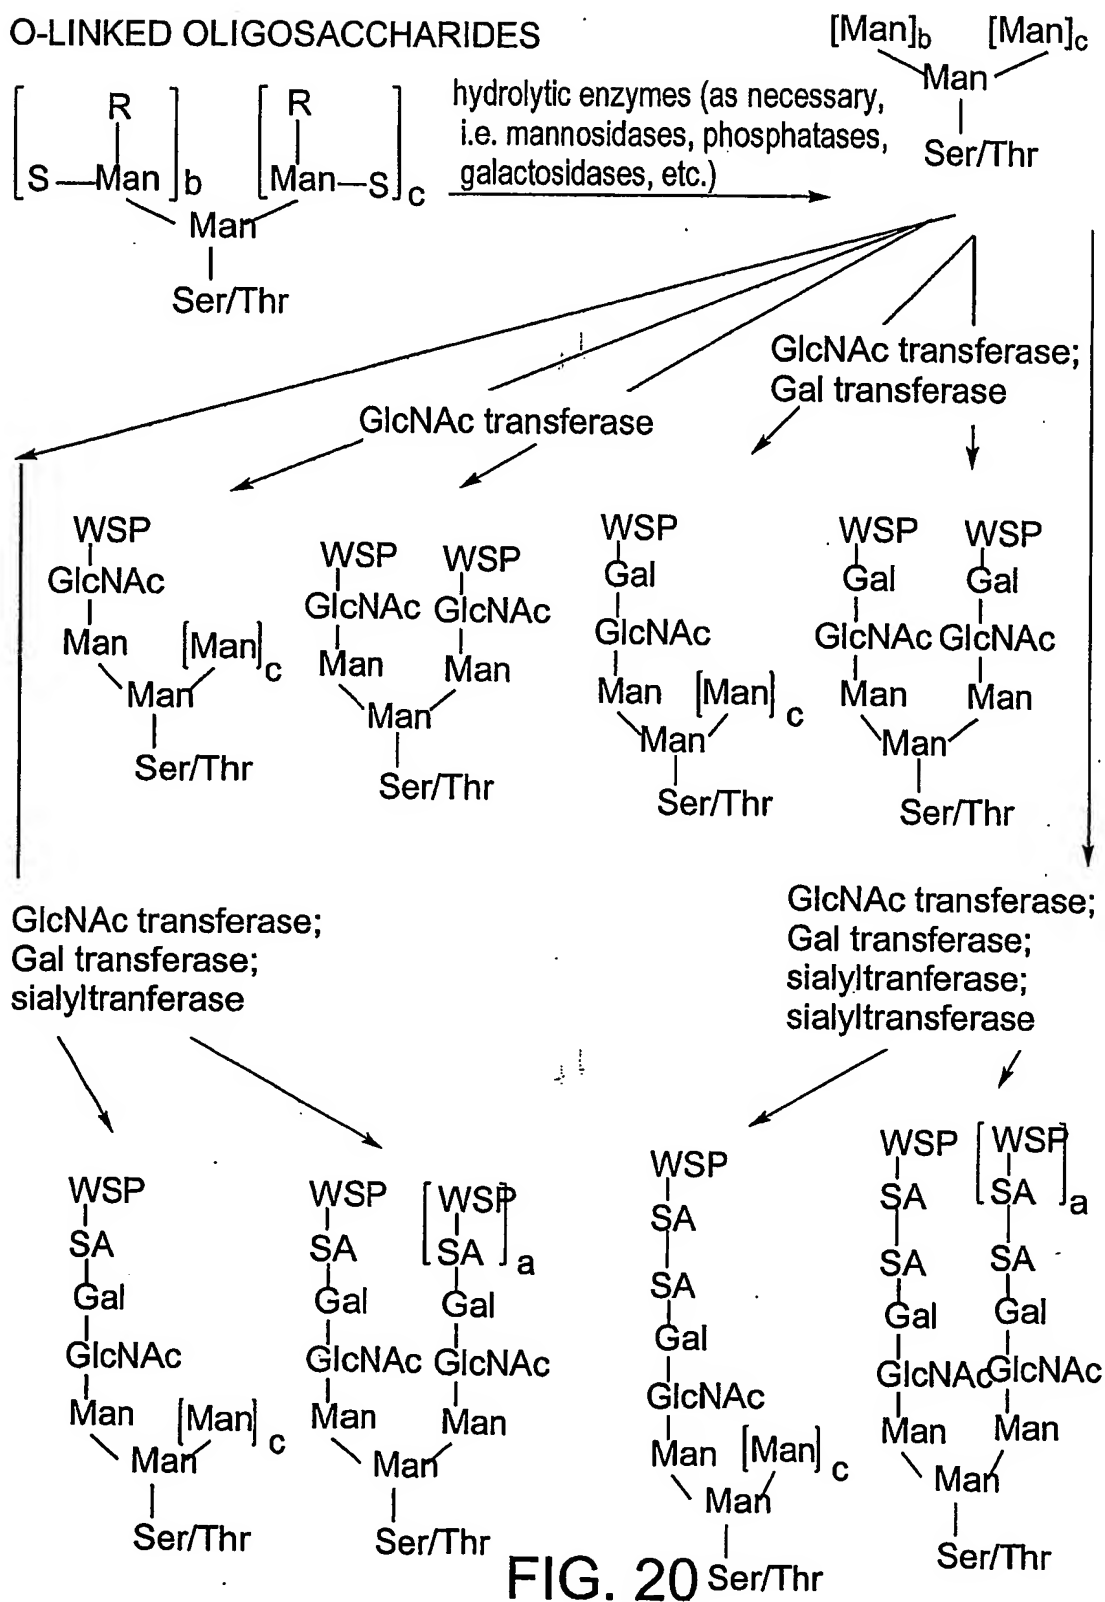 O-LINKED OLIGOSACCHARIDES
[Man]b [Man]c
Man
Ser/Thr
R R
[S—Man]b [Man—S]c
Man
Ser/Thr
hydrolytic enzymes (as necessary,
i.e. mannosidases, phosphatases,
galactosidases, etc.)
GlcNAc transferase
GlcNAc transferase;
Gal transferase
WSP
GlcNAc
Man [Man]c
Man
Ser/Thr
WSP WSP
GlcNAc GlcNAc
Man Man
Man
Ser/Thr
WSP
Gal
GlcNAc
Man [Man]c
Man
Ser/Thr
WSP WSP
Gal Gal
GlcNAc GlcNAc
Man Man
Man
Ser/Thr
GlcNAc transferase;
Gal transferase;
sialyltranferase
GlcNAc transferase;
Gal transferase;
sialyltranferase;
sialyltransferase
WSP
SA
Gal
GlcNAc
Man [Man]c
Man
Ser/Thr
WSP [WSP
SA SA]a
Gal Gal
GlcNAc GlcNAc
Man Man
Man
Ser/Thr
WSP
SA
SA
Gal
GlcNAc
Man [Man]c
Man
Ser/Thr
WSP [WSP
SA SA]a
SA SA
Gal Gal
GlcNAc GlcNAc
Man Man
Man
Ser/Thr
FIG. 20